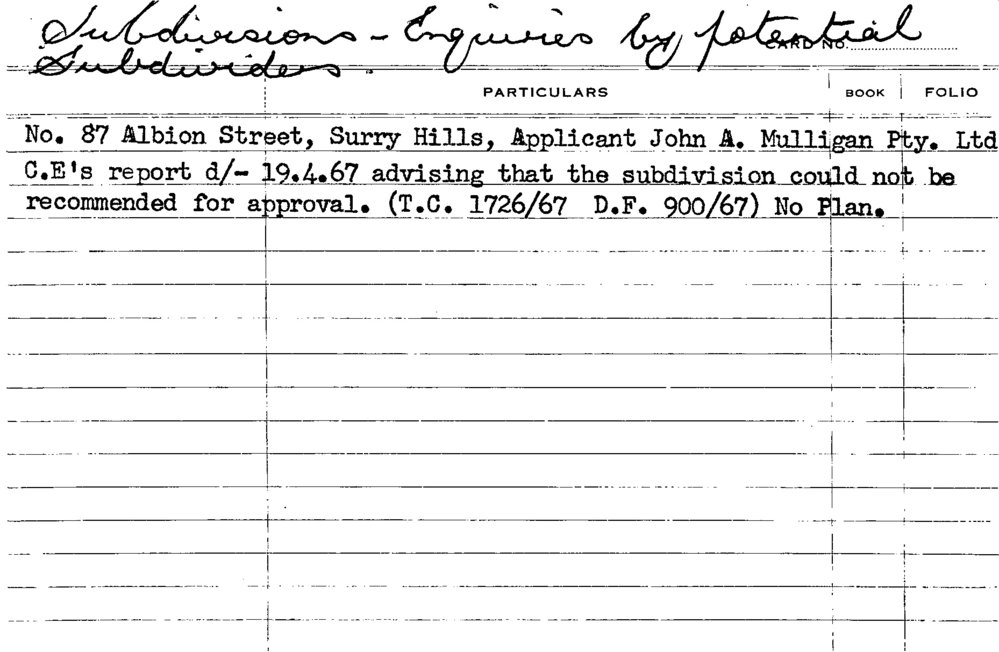 Subdivisions - Enquiries by potential
CARD No.
Subdividers.
PARTICULARS BOOK FOLIO
No. 87 Albion Street, Surry Hills, Applicant John A. Mulligan Pty. Ltd
C.E's report d/- 19.4.67 advising that the subdivision could not be
recommended for approval. (T.C. 1726/67 D.F. 900/67) No Plan.